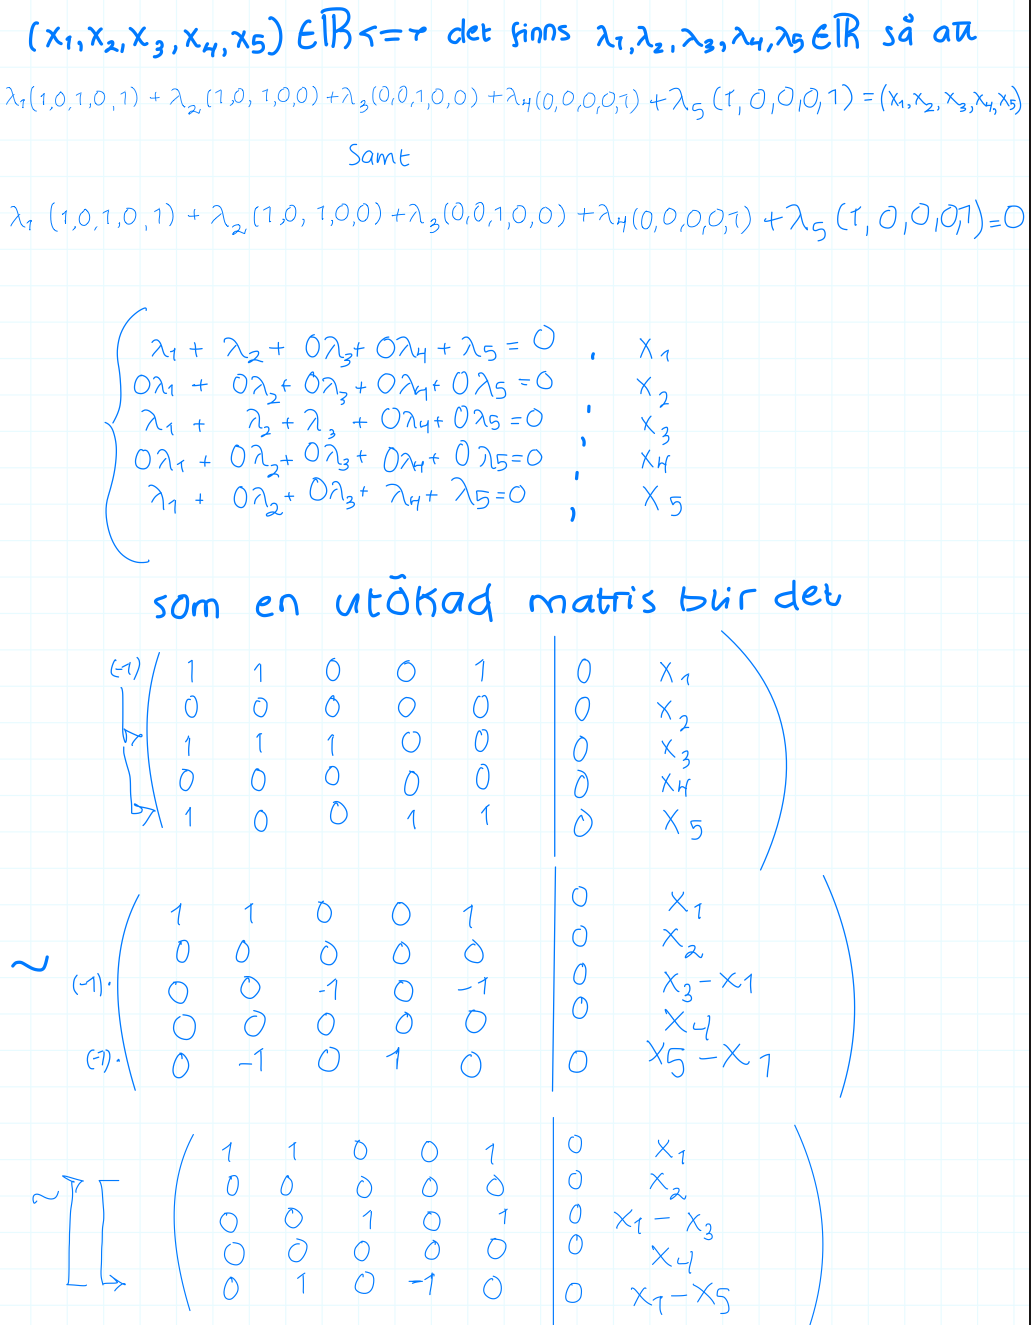 (x₁,x₂,x₃,x₄,x₅) ∈ ℝ <=> det finns λ₁,λ₂,λ₃,λ₄,λ₅ ∈ ℝ så att
λ₁(1,0,1,0,1) + λ₂(1,0,1,0,0) + λ₃(0,0,1,0,0) + λ₄(0,0,0,0,1) + λ₅(1,0,0,0,1) = (x₁,x₂,x₃,x₄,x₅)
Samt
λ₁(1,0,1,0,1) + λ₂(1,0,1,0,0) + λ₃(0,0,1,0,0) + λ₄(0,0,0,0,1) + λ₅(1,0,0,0,1) = 0
λ₁ + λ₂ + 0λ₃ + 0λ₄ + λ₅ = 0 , x₁
0λ₁ + 0λ₂ + 0λ₃ + 0λ₄ + 0λ₅ = 0 , x₂
λ₁ + λ₂ + λ₃ + 0λ₄ + 0λ₅ = 0 , x₃
0λ₁ + 0λ₂ + 0λ₃ + 0λ₄ + 0λ₅ = 0 , x₄
λ₁ + 0λ₂ + 0λ₃ + λ₄ + λ₅ = 0 , x₅
som en utökad matris blir det
(-1) 1 1 0 0 1 | 0 x₁
0 0 0 0 0 | 0 x₂
1 1 1 0 0 | 0 x₃
0 0 0 0 0 | 0 x₄
1 0 0 1 1 | 0 x₅
1 1 0 0 1 | 0 x₁
~ 0 0 0 0 0 | 0 x₂
(-1)· 0 0 -1 0 -1 | 0 x₃-x₁
0 0 0 0 0 | 0 x₄
(-1)· 0 -1 0 1 0 | 0 x₅-x₁
1 1 0 0 1 | 0 x₁
~ 0 0 0 0 0 | 0 x₂
0 0 1 0 1 | 0 x₁-x₃
0 0 0 0 0 | 0 x₄
0 1 0 -1 0 | 0 x₁-x₅